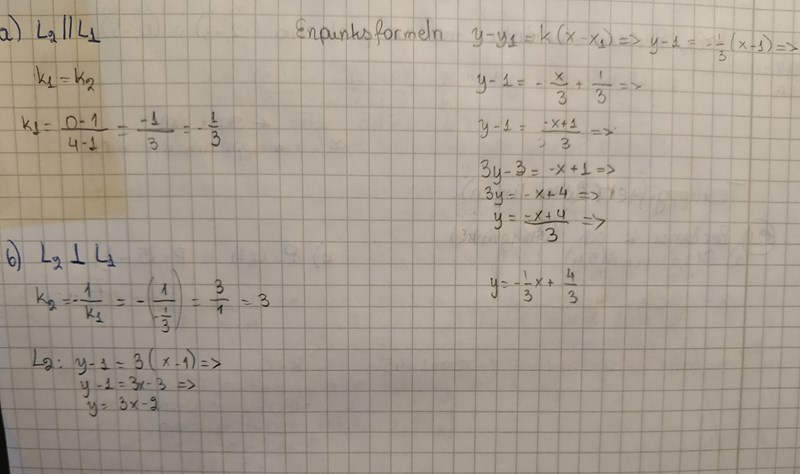 a) L₂ || L₁
k₁ = k₂
k₁ = (0-1)/(4-1) = -1/3 = -1/3
Enpunksformeln y-y₁ = k(x-x₁) => y-1 = -1/3(x-1) =>
y-1 = -x/3 + 1/3 =>
y-1 = (-x+1)/3 =>
3y-3 = -x+1 =>
3y = -x+4 =>
y = (-x+4)/3 =>
y = -1/3x + 4/3
b) L₂ ⊥ L₁
k₂ = -1/k₁ = -(1/(-1/3)) = 3/1 = 3
L₂: y-1 = 3(x-1) =>
y-1 = 3x-3 =>
y = 3x-2